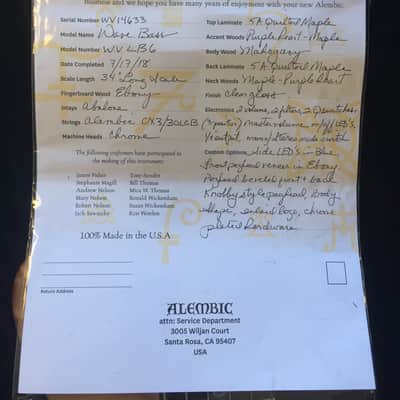 business and we hope you have many years of enjoyment with your new Alembic.
Serial Number WV14633
Model Name Wave Bass
Model Number WV LB6
Date Completed 7/17/18
Scale Length 34" Long Scale
Fingerboard Wood Ebony
Inlays Abalone
Strings Alembic CX3/30LCB
Machine Heads Chrome
Top Laminate 5A Quilted Maple
Accent Woods Purple heart - Maple
Body Wood Mahogany
Back Laminate 5A Quilted Maple
Neck Woods Maple - Purple heart
Finish Clear gloss
Electronics 2 volume, 2 filters, 2 Q switches
Master volume
output, mono/stereo
Custom Options Side LED's in Blue
Front peghead veneer in Ebony
Peghead beveled front & back
Knobby style peghead, body
shape, inlaid logo, chrome
plated hardware
The following craftsmen have participated in
the making of this instrument:
James Nulen
Stephanie Magill
Andrew Nelson
Mary Nelson
Robert Nelson
Jack Sawatzky
Tony Sender
Bill Thomas
Mica W. Thomas
Ronald Wickersham
Susan Wickersham
Ken Worden
100% Made in the U.S.A.
Return Address
ALEMBIC
attn: Service Department
3005 Wiljan Court
Santa Rosa, CA 95407
USA